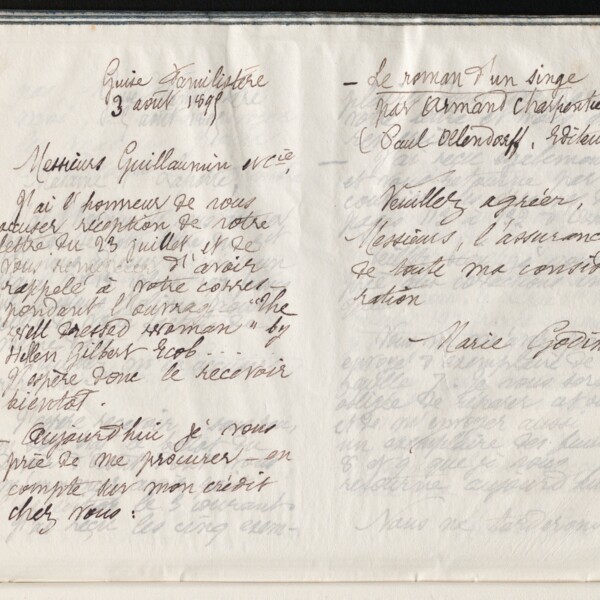 Guise Familistère
3 août 1895
Messieurs Guillaumin et Cie,
J'ai l'honneur de vous
accuser réception de votre
lettre du 23 juillet et de
vous remercier d'avoir
rappelé à votre corres-
pondant l'ouvrage "The
well dressed woman" by
Helen Gilbert Ecob....
J'espère donc le recevoir
bientôt.
- Aujourd'hui je vous
prie de me procurer - en
compte sur mon crédit
chez vous :
- Le roman d'un singe
par Armand Charpentie
(Paul Ollendorff, Editeu
Veuillez agréer,
Messieurs, l'assuranc
de toute ma consid
ration
Marie Godin